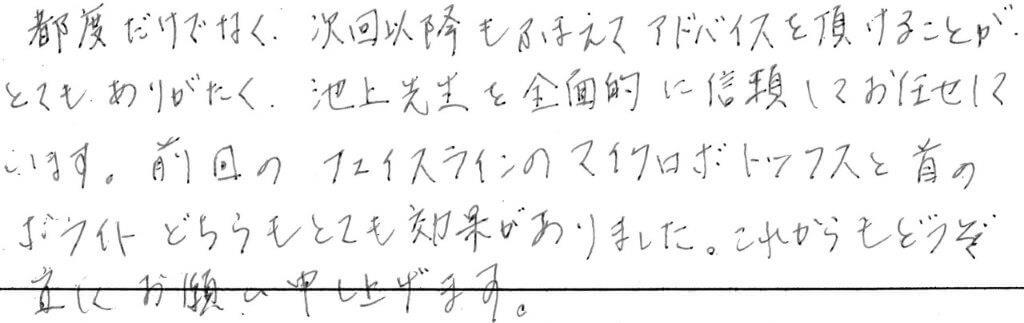 都度だけでなく、次回以降もふまえてアドバイスを頂けることが、
とてもありがたく、池上先生を全面的に信頼してお任せして
います。前回のフェイスラインのマイクロボトックスと首の
ボライトどちらもとても効果がありました。これからもどうぞ
宜しくお願い申し上げます。